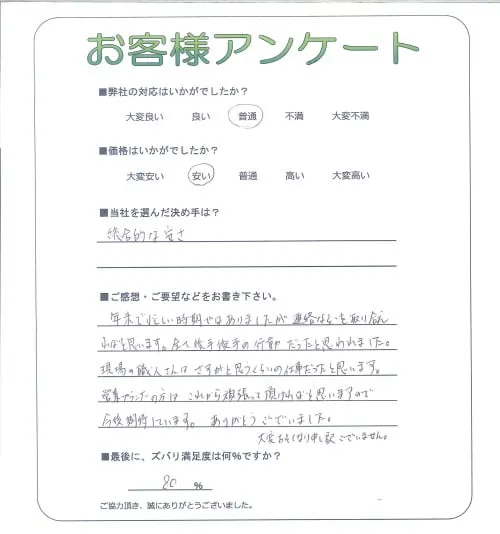 お客様アンケート
■弊社の対応はいかがでしたか？
大変良い 良い 普通 不満 大変不満
■価格はいかがでしたか？
大変安い 安い 普通 高い 大変高い
■当社を選んだ決め手は？
総合的な安さ
■ご感想・ご要望などをお書き下さい。
年末で忙しい時期ではありましたが連絡などを取り合え
ればと思います。全て後手後手の行動だったと思われました。
現場の職人さんは さすがと思うくらいの仕事だったと思います。
営業 の方は これから頑張って頂ければと思いますので
今後期待しています。 ありがとうございました。
大変おそくなり申し訳ございません。
■最後に、ズバリ満足度は何％ですか？
80 ％
ご協力頂き、誠にありがとうございました。